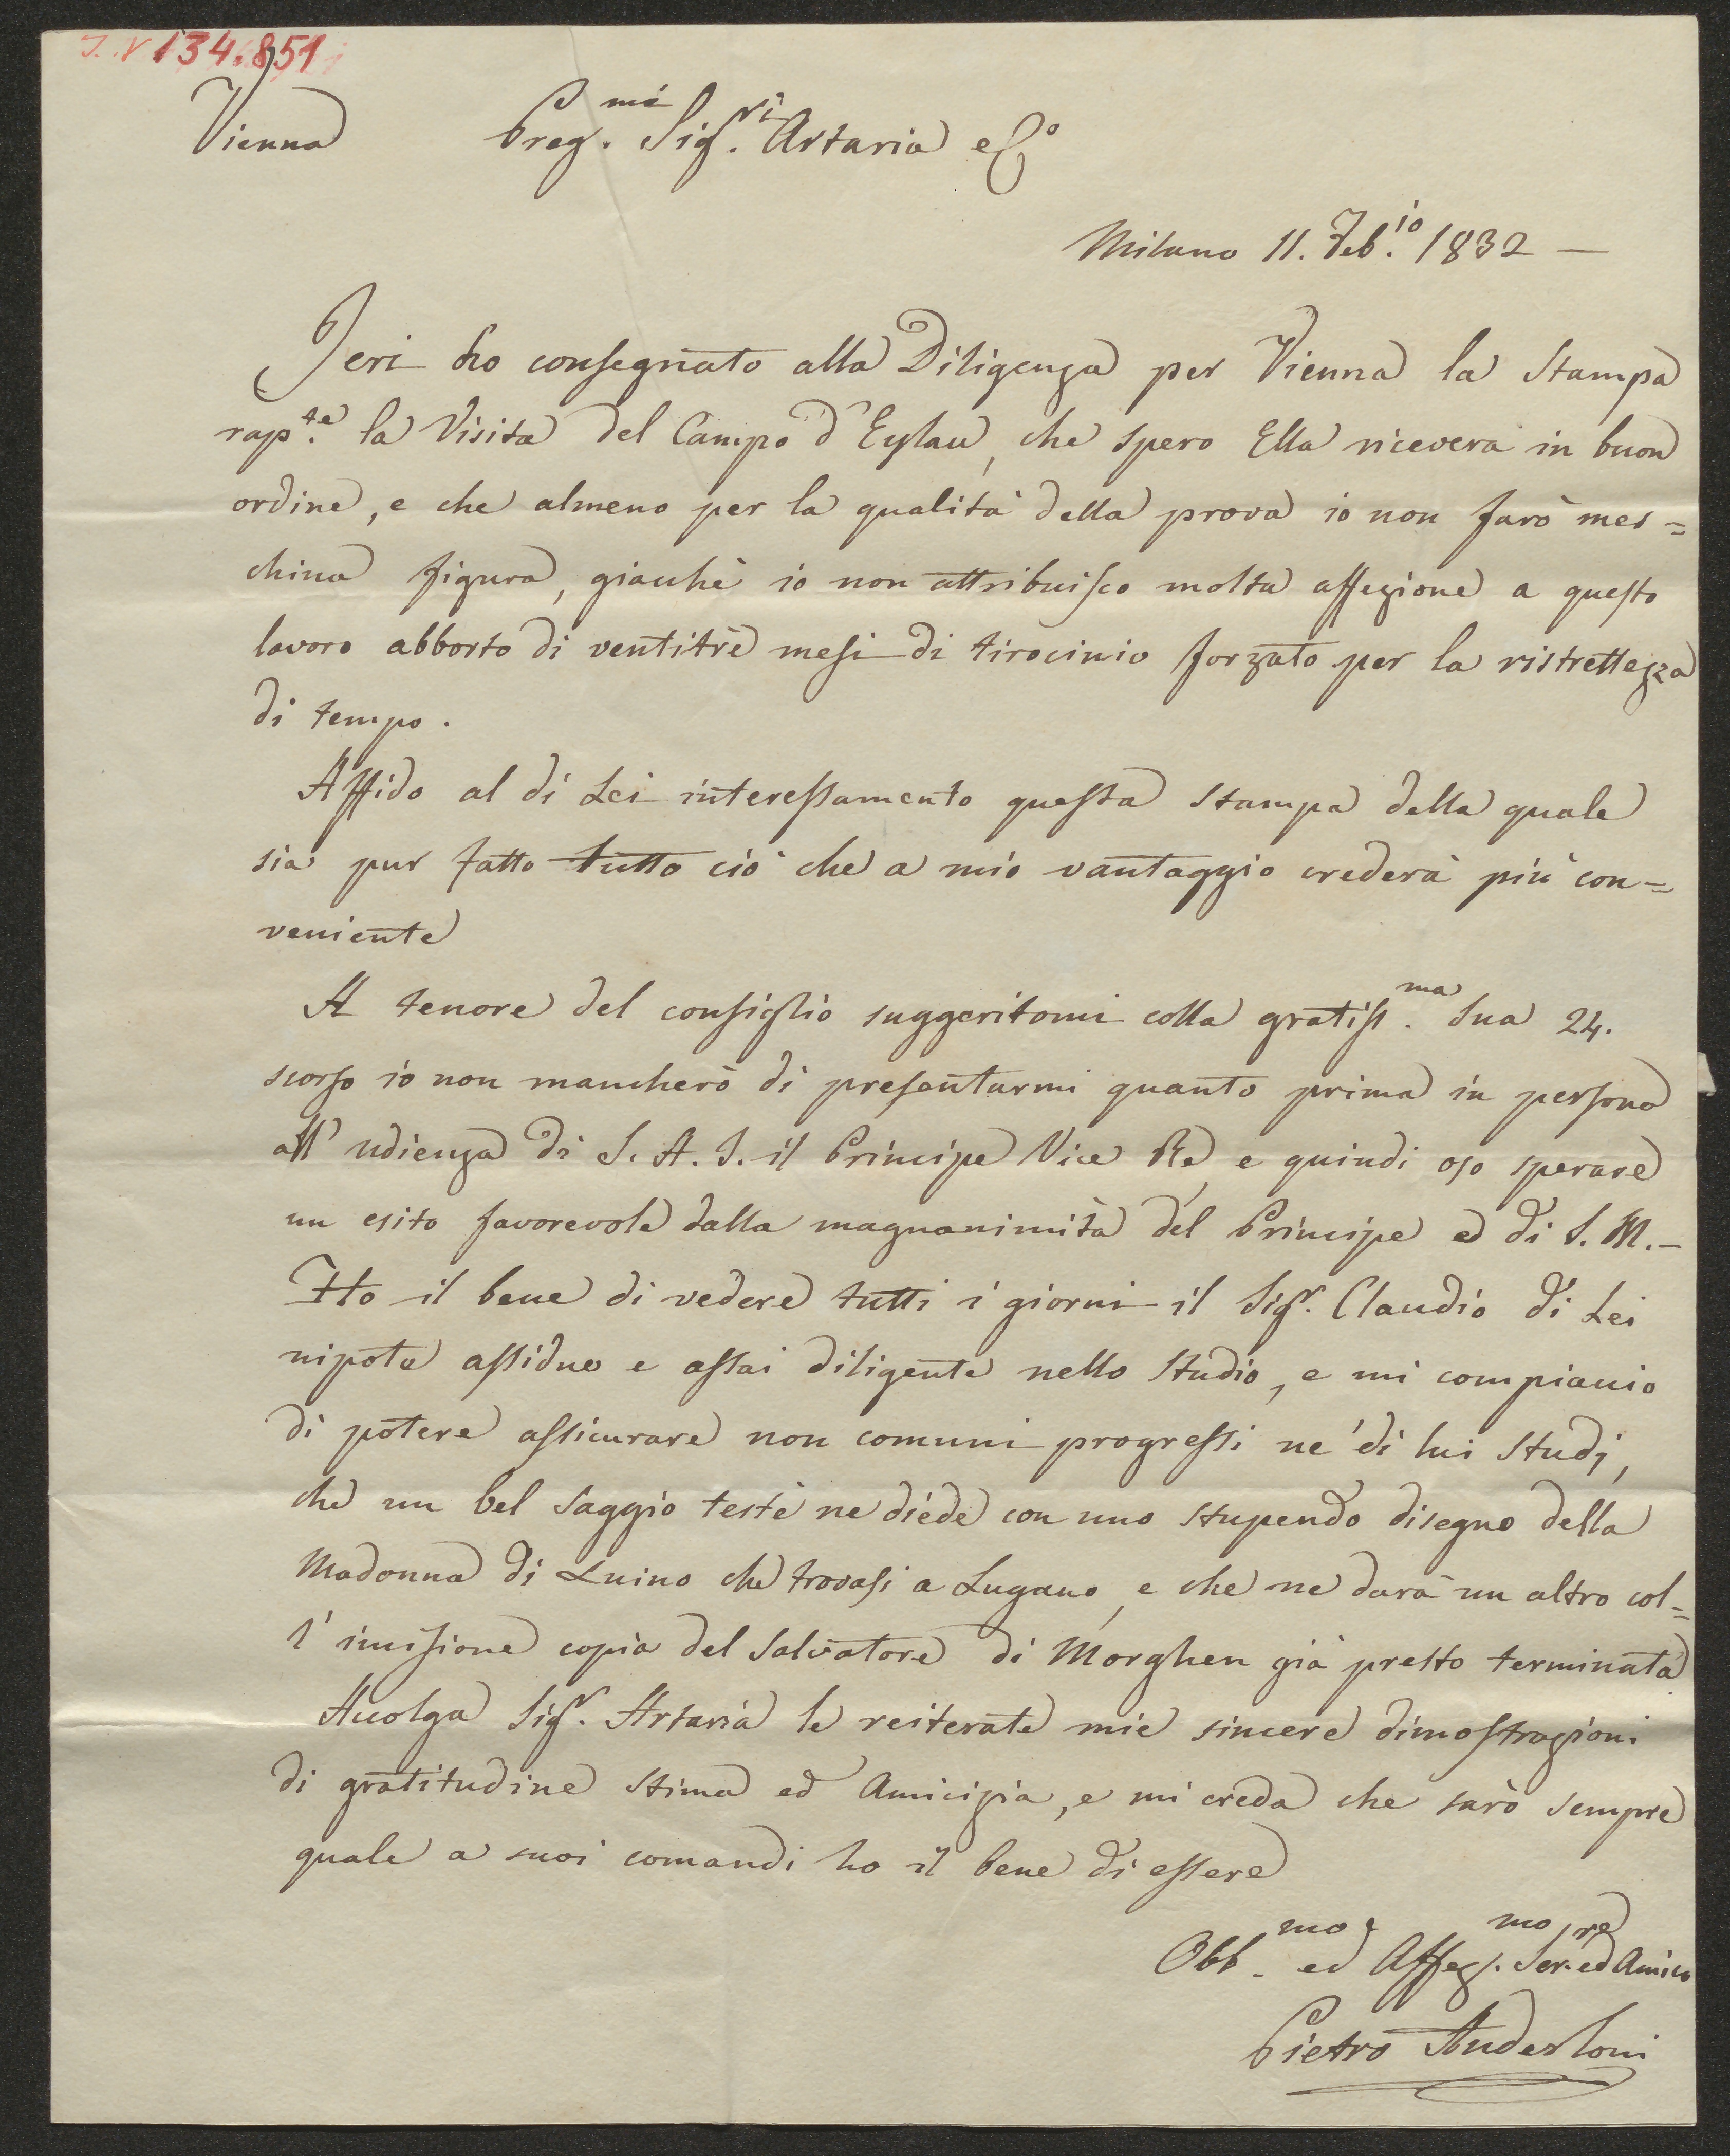 I. N 134.851
Vienna Preg.mi Sig.ri Artaria e C.o
Milano 11. Feb.io 1832 —
Jeri ho consegnato alla Diligenza per Vienna la Stampa
rap.te la Visita del Campo d'Eylau, che spero Ella riceverà in buon
ordine, e che almeno per la qualità della prova io non farò mes=
china figura, giacchè io non attribuisco molta affezione a questo
lavoro abborto di ventitrè mesi di tirocinio forzato per la ristrettezza
di tempo.
Affido al di Lei interessamento questa stampa della quale
sia pur fatto tutto ciò che a mio vantaggio crederà più con=
veniente
A tenore del consiglio suggeritomi colla gratiss.ma Sua 24.
scorso io non mancherò di presentarmi quanto prima in persona
all'udienza di S. A. I. il Principe Vice Re, e quindi oso sperare
un esito favorevole dalla magnanimità del Principe ed di S. M. —
Ho il bene di vedere tutti i giorni il Sigr. Claudio di Lei
nipote assiduo e assai diligente nello Studio, e mi compiaccio
di potere assicurare non comuni progressi ne' di lui studj,
che un bel saggio testè ne diede con uno stupendo disegno della
Madonna di Luino che trovasi a Lugano, e che ne darà un altro col=
l'incisione copia del Salvatore di Morghen già presto terminata
Accolga Sigr. Artaria le reiterate mie sincere dimostrazioni
di gratitudine stima ed Amicizia, e mi creda che sarò sempre
quale a suoi comandi ho il bene di essere
Obb.mo ed Affez.mo Ser.re ed Amico
Pietro Anderloni